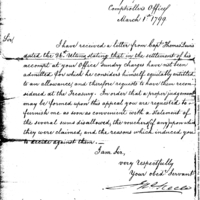 Comptroller's Office
March 1st 1799
Sir
I have received a letter from Capt Thomas Lewis
dated the 26th Ultimo, stating that in the settlement of his
account at your Office Sundry charges have not been
admitted, for which he considers himself equitably entitled
to an allowance and therefore requests to have them recon-
sidered at the Treasury. In order that a proper judgment
may be formed upon this appeal you are requested to
furnish me as soon as convenient with a statement of
the several sums disallowed, the vouchers if any upon which
they were claimed, and the reasons which induced you
to decide against them.
I am Sir,
very respectfully
Your obed Servant
Steele